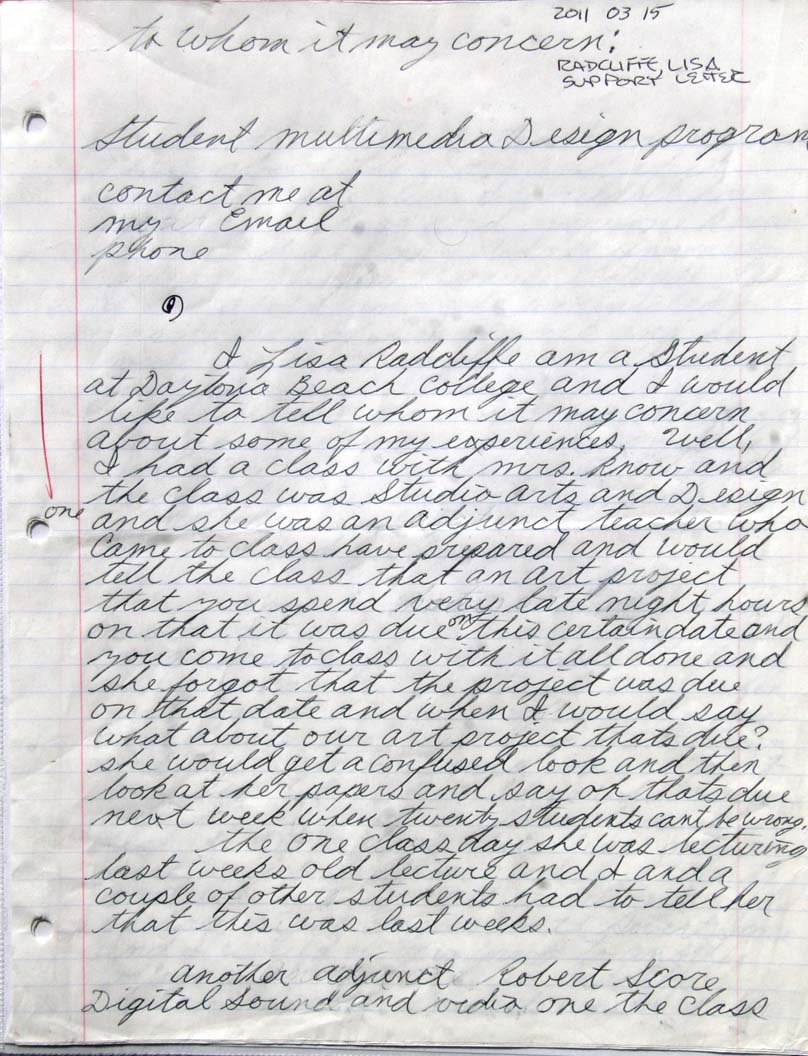 2011 03 15
to whom it may concern:
RADCLIFFE, LISA
SUPPORT LETTER
Student multimedia Design program
contact me at
my Email
phone
1)
I Lisa Radcliffe am a Student
at Daytona Beach college and I would
like to tell whom it may concern
about some of my experiences. Well,
I had a class with mrs. Know and
the class was Studio arts and Design
one
and she was an adjunct teacher who
came to class have prepared and would
tell the class that an art project
that you spend very late night hours
on that it was due on this certain date and
you come to class with it all done and
she forgot that the project was due
on that date and when I would say
what about our art project thats due?
she would get a confused look and then
look at her papers and say oh thats due
next week when twenty students cant be wrong.
the one class day she was lecturing
last weeks old lecture and I and a
couple of other students had to tell her
that this was last weeks.
another adjunct Robert Score
Digital Sound and vidio one the class